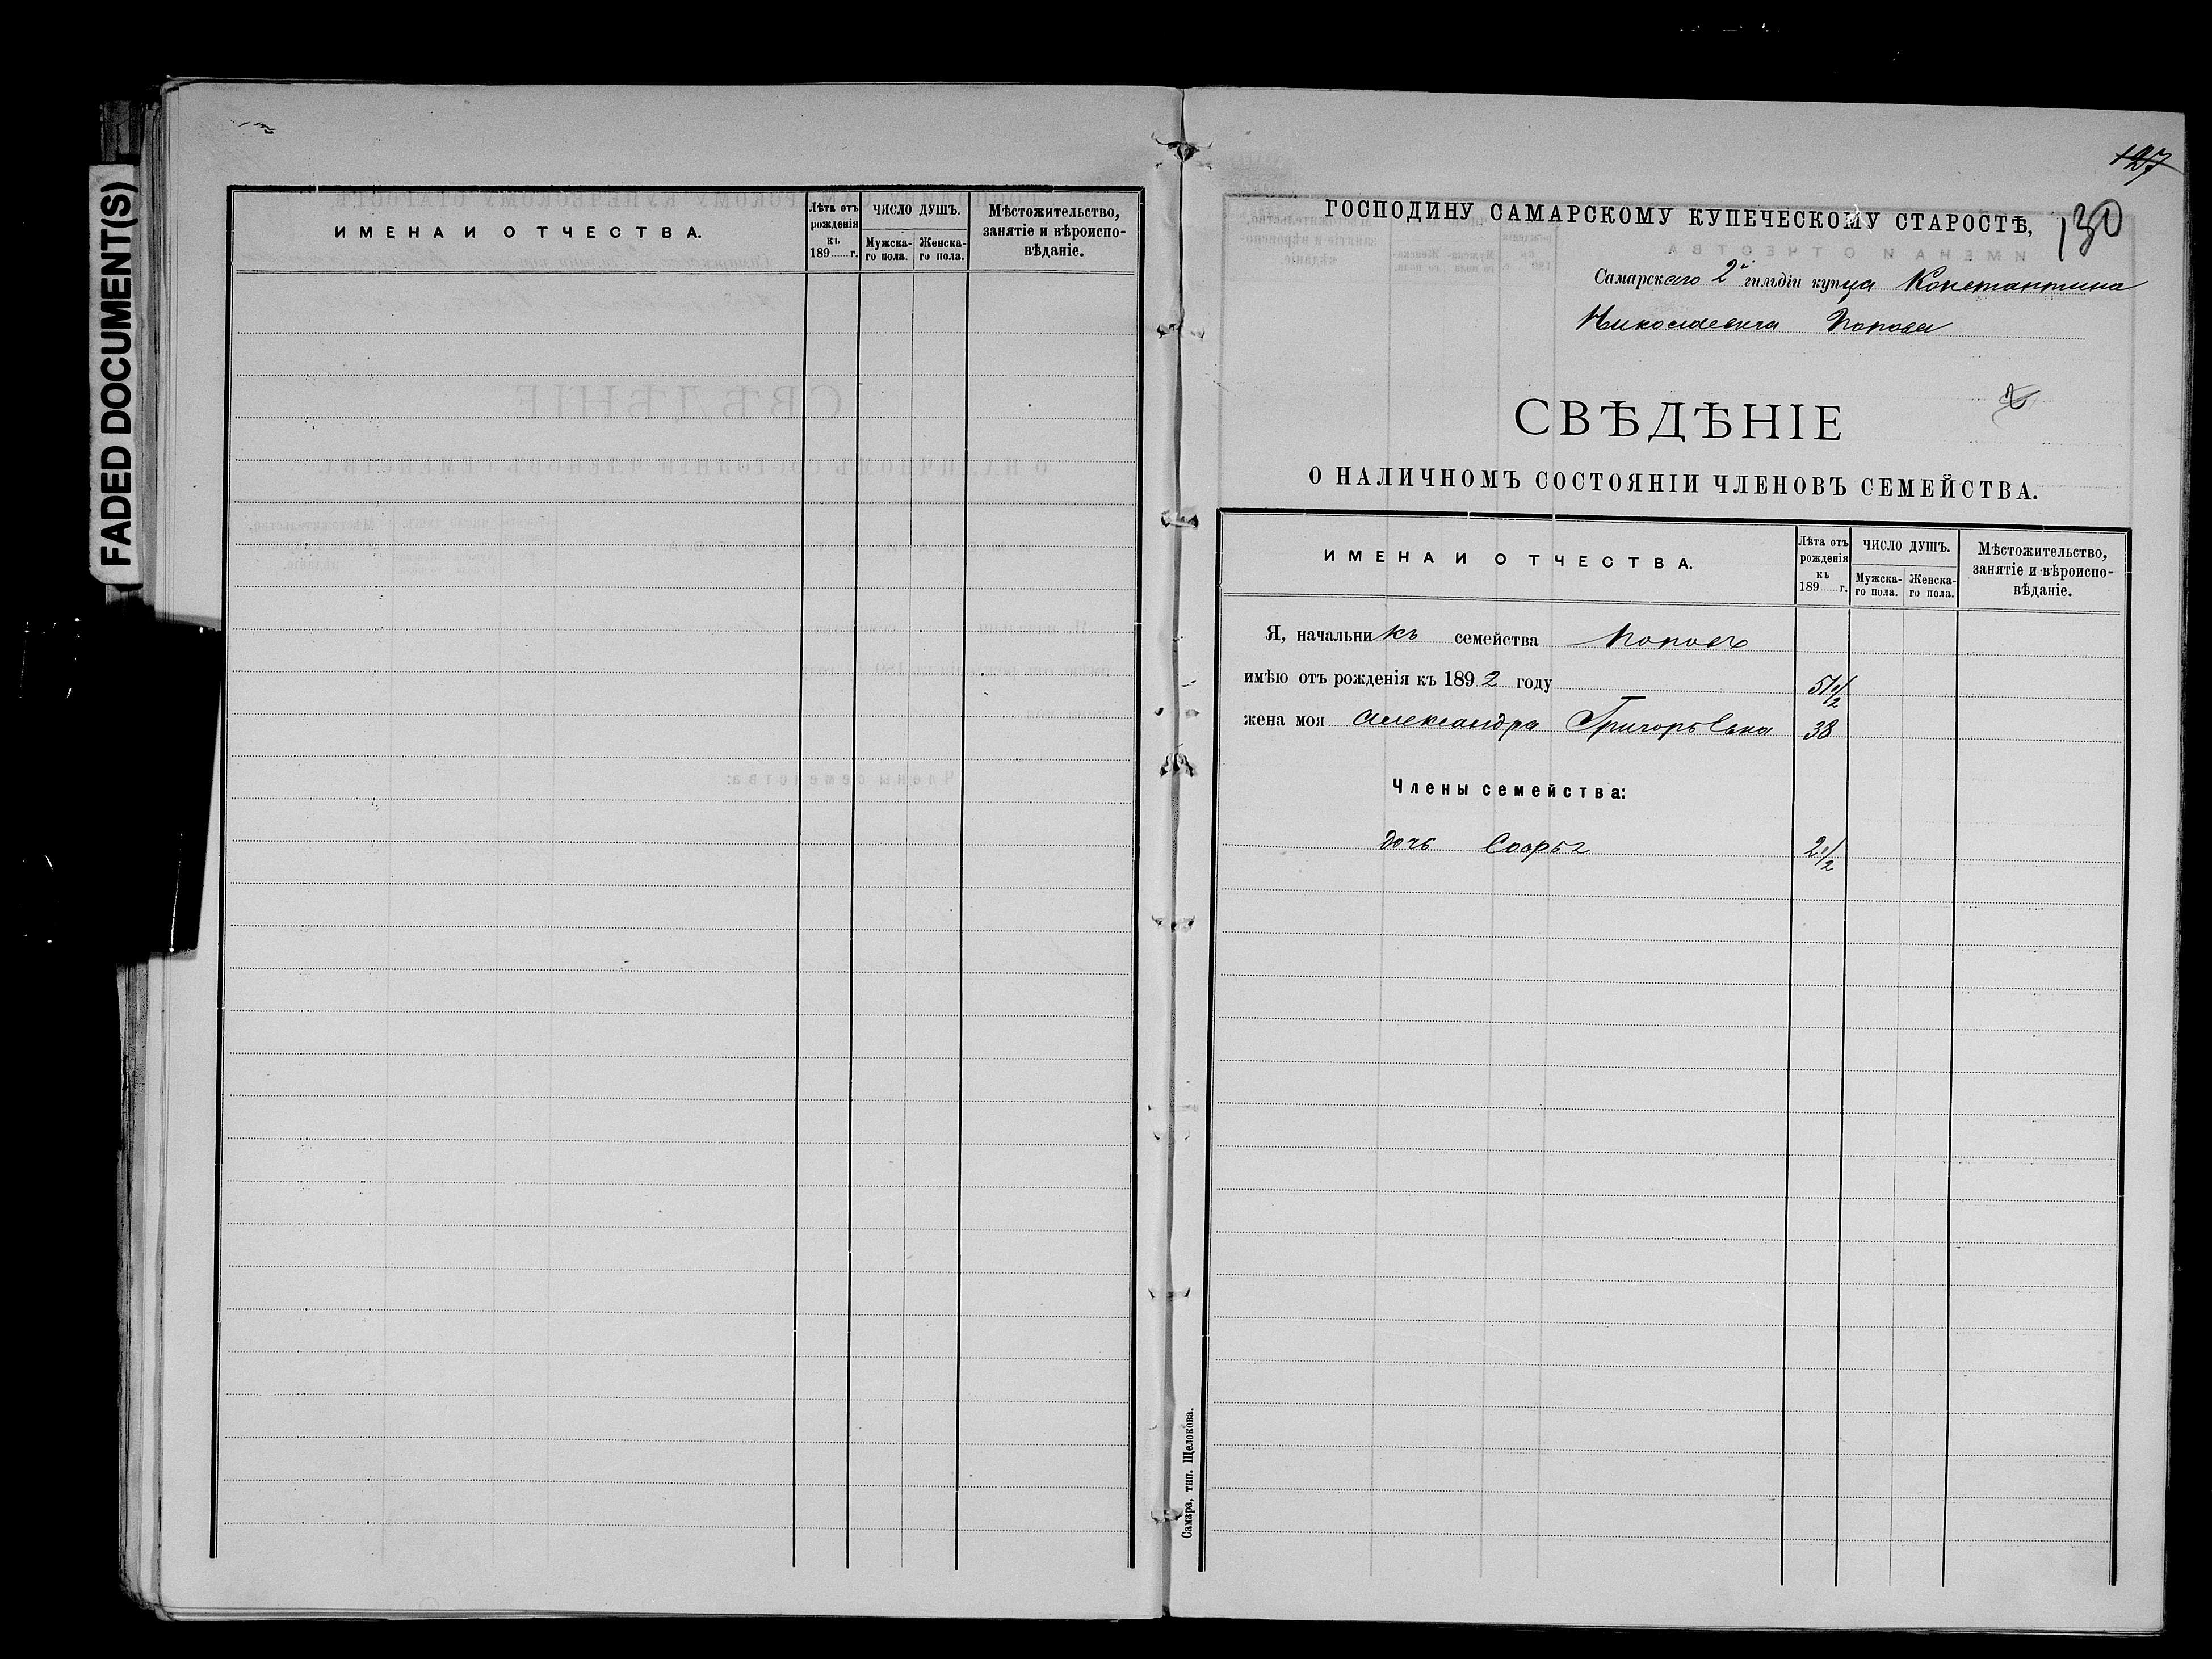 FADED DOCUMENT(S)
ИМЕНА И ОТЧЕСТВА.
Лѣта отъ рожденія къ 189 г.
ЧИСЛО ДУШЪ.
Мужска-го пола.
Женска-го пола.
Мѣстожительство, занятіе и вѣроиспо-вѣданіе.
127
130
ГОСПОДИНУ САМАРСКОМУ КУПЕЧЕСКОМУ СТАРОСТѢ,
Самарскаго 2й гильдіи купца Константина
Николаевича Попова
СВѢДѢНІЕ
О НАЛИЧНОМЪ СОСТОЯНІИ ЧЛЕНОВЪ СЕМЕЙСТВА.
ИМЕНА И ОТЧЕСТВА.
Лѣта отъ рожденія къ 189 г.
ЧИСЛО ДУШЪ.
Мужска-го пола.
Женска-го пола.
Мѣстожительство, занятіе и вѣроиспо-вѣданіе.
Я, начальникъ семейства Поповъ
имѣю отъ рожденія къ 1892 году 51 1/2
жена моя Александра Григорьевна 38
Члены семейства:
дочь Софья 2 1/2
Самара, тип. Щелокова.